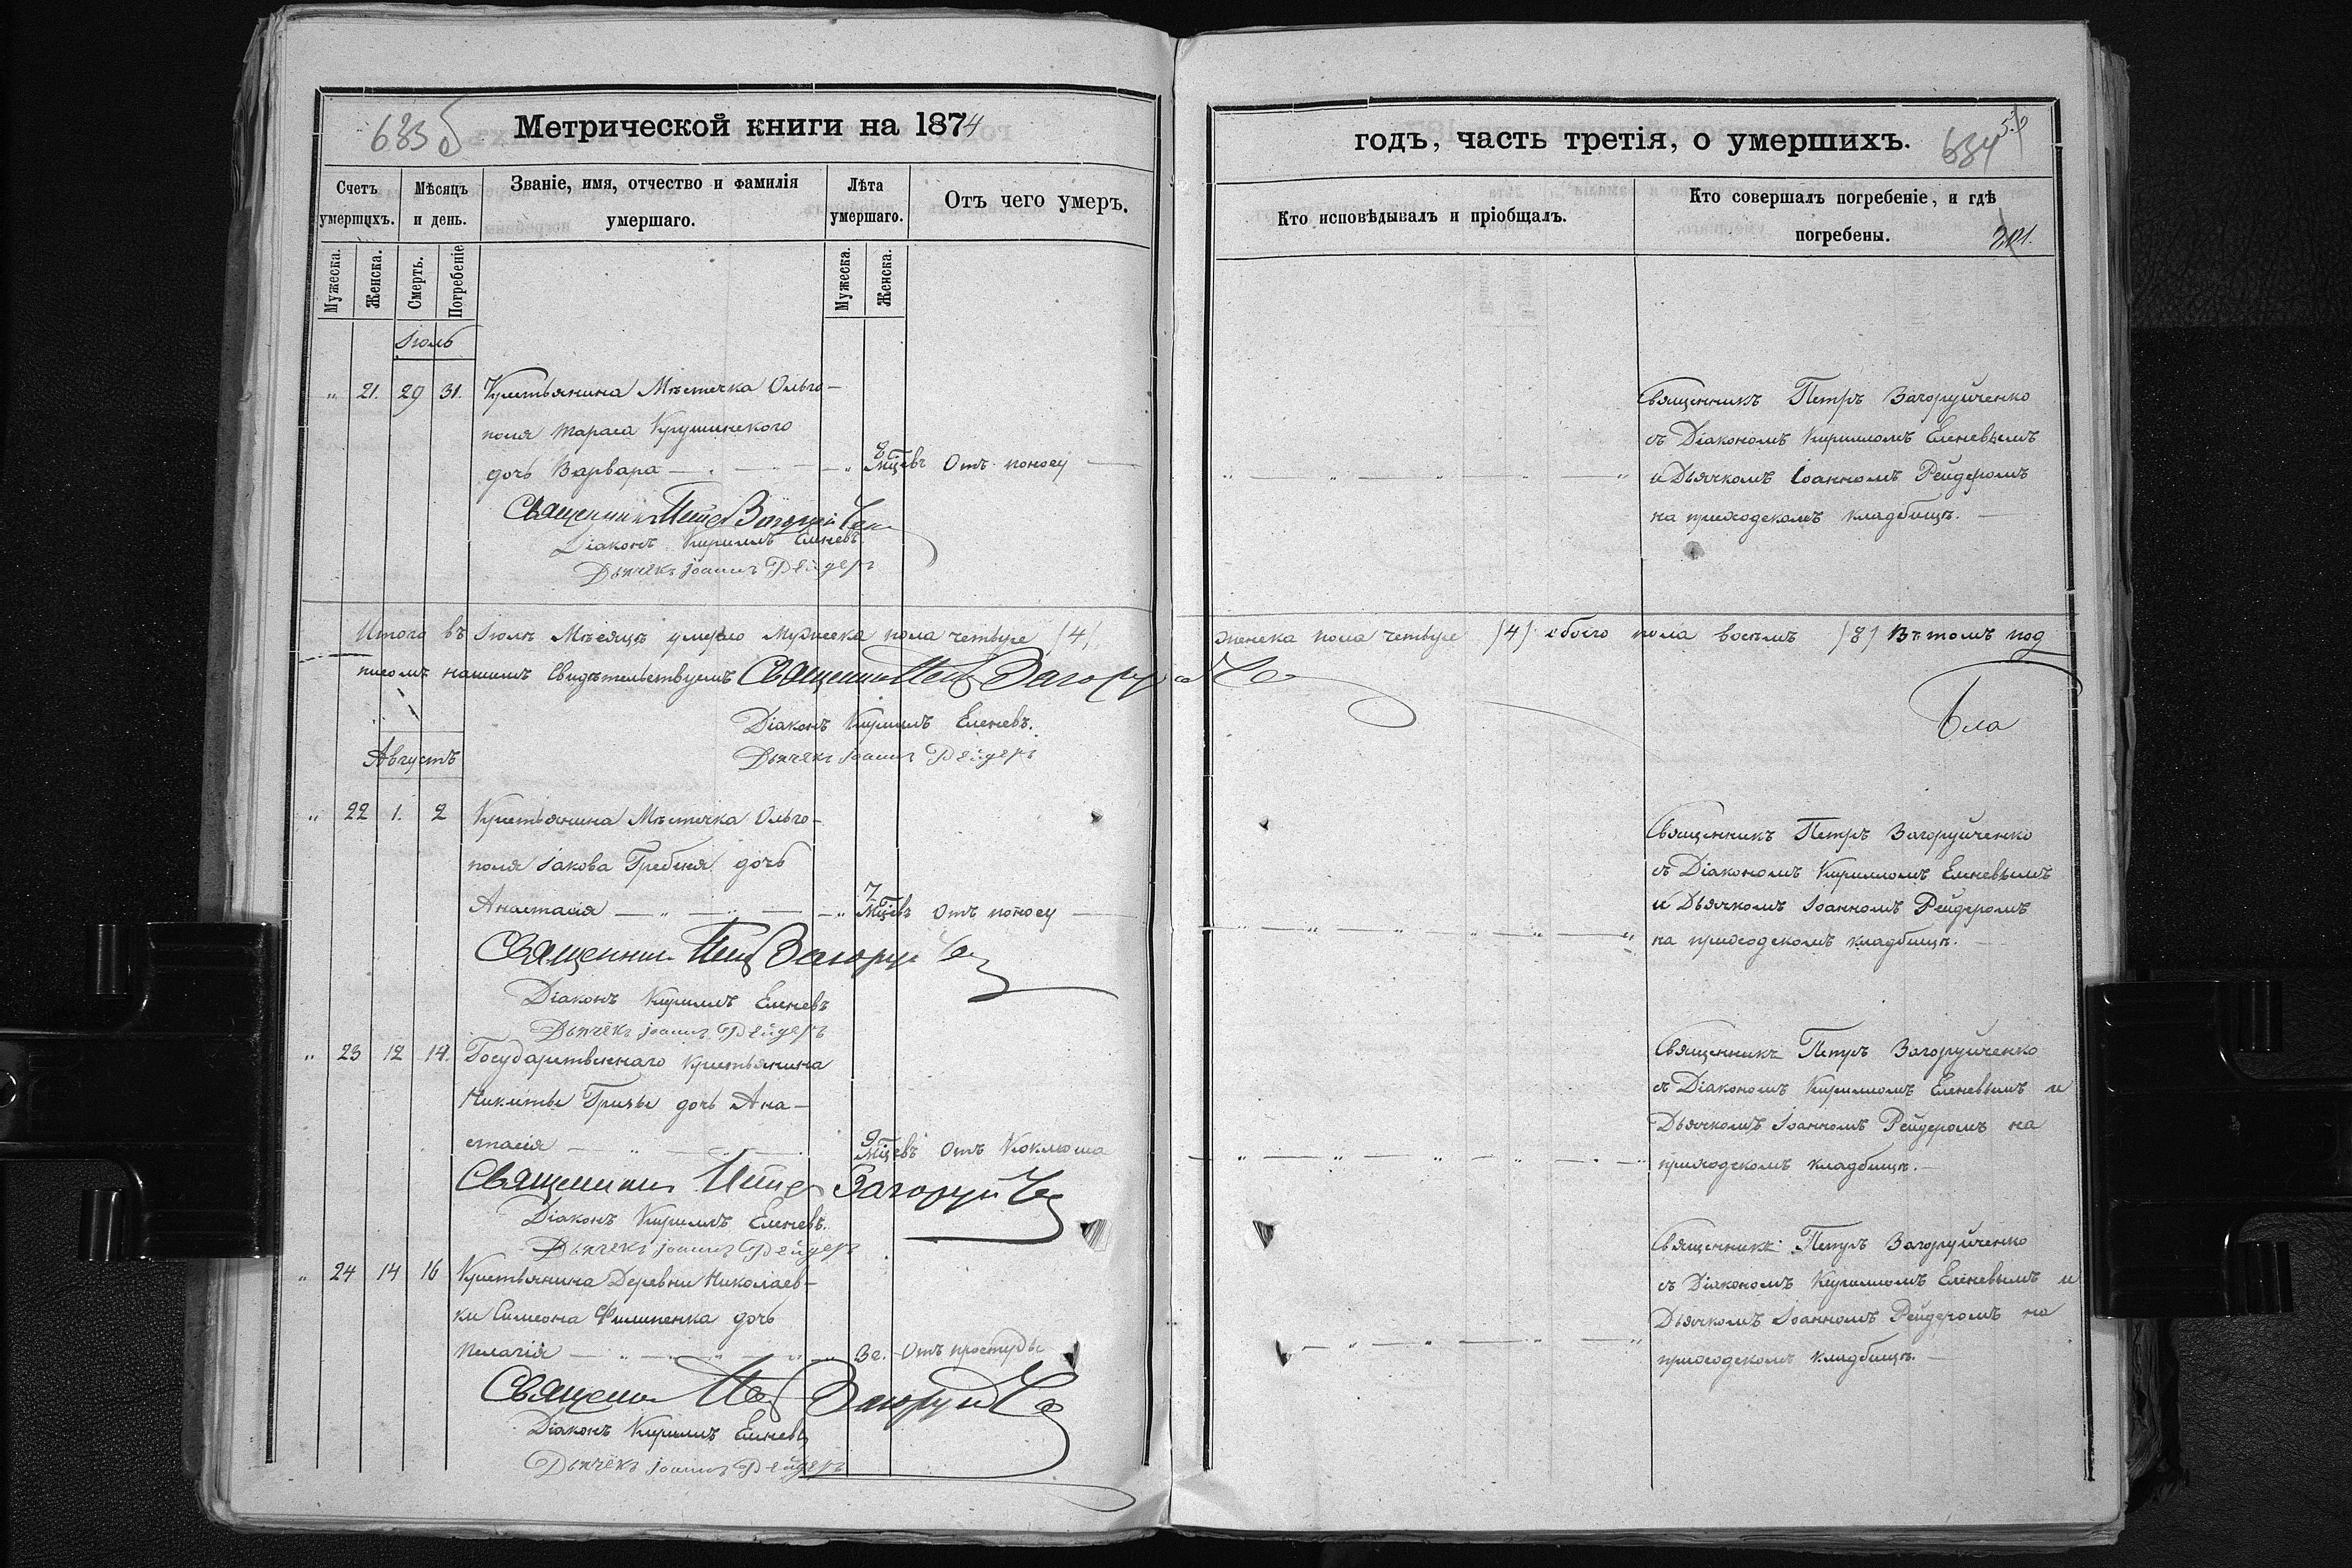 633 б
Метрической книги на 1874
Счетъ умершихъ.
Мѣсяцъ и день.
Званіе, имя, отчество и фамилія умершаго.
Лѣта умершаго.
Отъ чего умеръ.
Мужеска.
Женска.
Смерть.
Погребеніе
Мужеска.
Женска.
Іюль
" 21. 29 31. Крестьянина Мѣстечка Ольго-
поля Тараса Крушинского
дочь Варвара — " 8 мѣцевъ Отъ поносу
Священникъ Петръ Загоруйченко
Діаконъ Кириллъ Еленевъ.
Дьячекъ Іоаннъ Рейдеръ
Итого въ Іюлѣ Мѣсяцѣ умерло Мужеска пола четыре /4/,
писомъ нашимъ свидѣтельствуемъ Священникъ Петръ Загоруйче
Діаконъ Кириллъ Еленевъ.
Дьячекъ Іоаннъ Рейдеръ
Августъ
" 22 1. 2 Крестьянина Мѣстечка Ольго-
поля Іакова Гребеня дочь
Анастасія — " — " 7 мѣцевъ Отъ поносу
Священникъ Петръ Загоруйче
Діаконъ Кириллъ Еленевъ
Дьячекъ Іоаннъ Рейдеръ
" 23 12 14. Государственнаго крестьянина
Никиты Гризы дочь Ана-
стасія — " — 9 мѣцевъ Отъ Коклюша
Священникъ Петръ Загоруйче
Діаконъ Кириллъ Еленевъ.
Дьячекъ Іоаннъ Рейдеръ
" 24 14 16 Крестьянина Деревни Николаев-
ки Симеона Филипенка дочь
Пелагія — " — " 3 г. Отъ простуды
Священникъ Петръ Загоруйче
Діаконъ Кириллъ Еленевъ
Дьячекъ Іоаннъ Рейдеръ
годъ, часть третія, о умершихъ.
634
Кто исповѣдывалъ и пріобщалъ.
Кто совершалъ погребеніе, и гдѣ погребены.
201.
Священникъ Петръ Загоруйченко
съ Діакономъ Кирилломъ Еленевымъ
и Дьячкомъ Іоанномъ Рейдеромъ
на приходскомъ кладбищѣ.
женска пола четыре /4/ обоего пола восемь /8/ Въ томъ под
Священникъ Петръ Загоруйченко
съ Діакономъ Кирилломъ Еленевымъ
и Дьячкомъ Іоанномъ Рейдеромъ
на приходскомъ кладбищѣ.
Священникъ Петръ Загоруйченко
съ Діакономъ Кирилломъ Еленевымъ и
Дьячкомъ Іоанномъ Рейдеромъ на
приходскомъ кладбищѣ.
Священникъ Петръ Загоруйченко
съ Діакономъ Кирилломъ Еленевымъ и
Дьячкомъ Іоанномъ Рейдеромъ на
приходскомъ кладбищѣ.